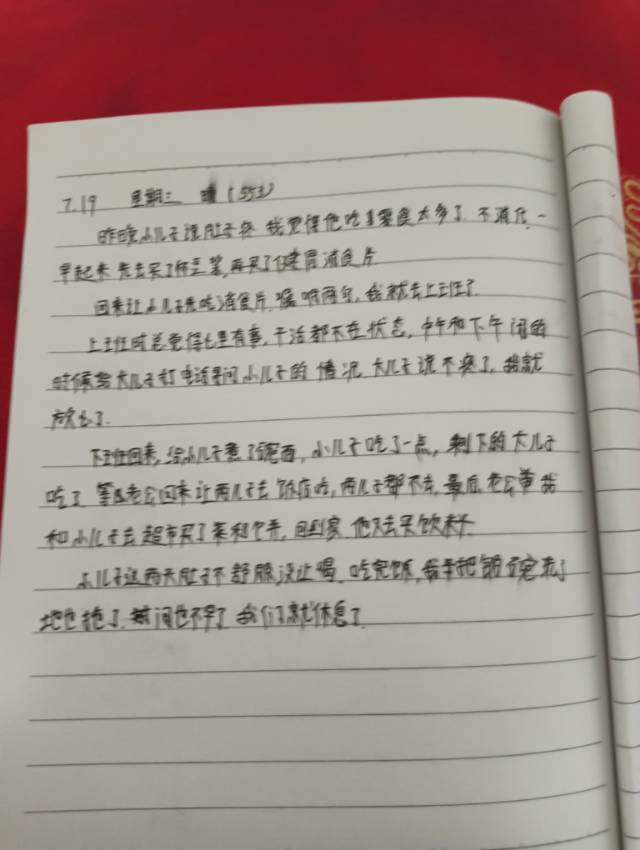 7.19 星期三 晴(553)
昨晚小儿子说肚子疼 我觉得他吃零食太多了 不消化,一
早起来 先去买了杯豆浆,再买了健胃消食片
回来让小儿子先吃消食片,嘱咐两句,我就去上班了.
上班时总觉得心里有事,干活都不在状态,中午和下午闲的
时候给大儿子打电话问小儿子的情况 大儿子说不疼了,我就
放心了.
下班回来,给小儿子煮了 小儿子吃了一点,剩下的大儿子
吃了 老公回来让两儿子去饭店吃,两儿子都不去,最后老公带我
和小儿子去超市买了菜和 回到家 他又去买饮料
小儿子这两天肚子不舒服,没让喝,吃完饭,我把锅 洗了
地也拖了.时间也不早了 我们就休息了.